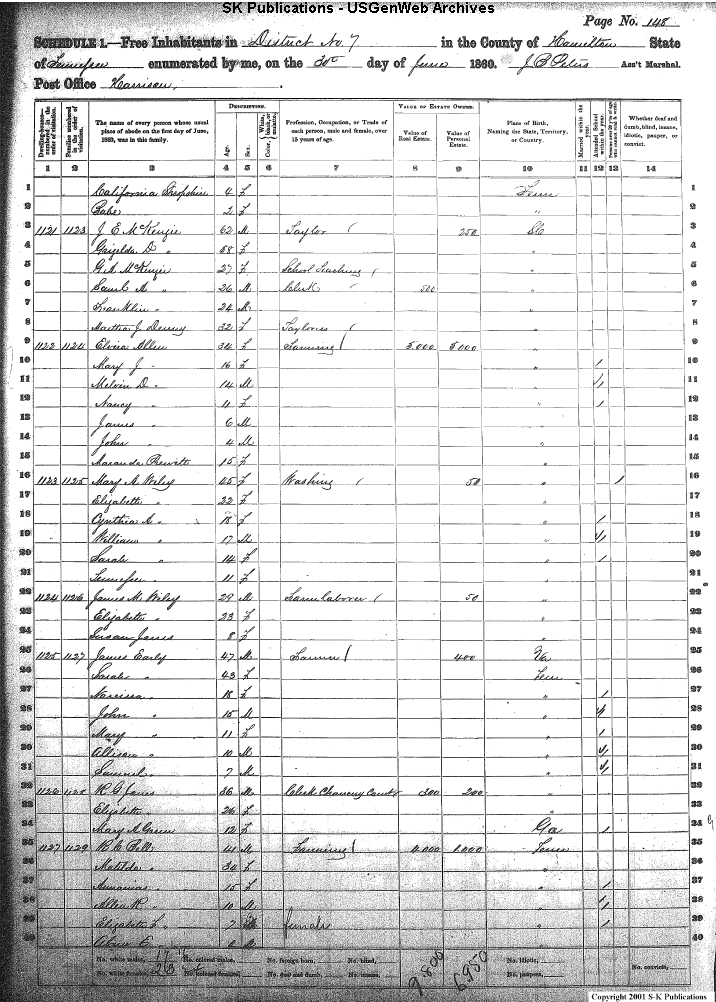 SK Publications - USGenWeb Archives
Page No. 148
SCHEDULE 1.—Free Inhabitants in District No. 7 in the County of Hamilton State
of Tennessee enumerated by me, on the 30th day of June 1860. J B Peters Ass't Marshal.
Post Office Harrison,
Dwelling-houses—numbered in the order of visitation.
Families numbered in the order of visitation.
The name of every person whose usual place of abode on the first day of June, 1860, was in this family.
DESCRIPTION.
Age.
Sex.
Color, White, black, or mulatto.
Profession, Occupation, or Trade of each person, male and female, over 15 years of age.
VALUE OF ESTATE OWNED.
Value of Real Estate.
Value of Personal Estate.
Place of Birth, Naming the State, Territory, or Country.
Married within the year.
Attended School within the year.
Whether deaf and dumb, blind, insane, idiotic, pauper, or convict.
1 2 3 4 5 6 7 8 9 10 11 12 13 14
1 California 4 f Tenn 1
2 2 f " 2
3 1121 1123 J E McKenzie 62 M Taylor 250 3
4 Grizelda D " 58 f " 4
5 G A McKenzie 27 f School Teaching " 5
6 Saml A " 26 M Clerk 500 " 6
7 Franklin " 24 M " 7
8 Martha J Denny 32 f Tayloress " 8
9 1122 1124 Elvira Allen 34 f Farming 5,000 5,000 " 9
10 Mary J " 16 f " / 10
11 Melvin D " 14 M " / 11
12 Nancy " 11 f " / 12
13 James " 6 M " 13
14 John " 4 M " 14
15 Maranda Prewitt 15 f " 15
16 1123 1125 Mary A Wiley 45 f Washing 50 " / 16
17 Elizabeth " 22 f " 17
18 Cynthia A " 18 f " / 18
19 William " 17 M " / 19
20 Sarah " 14 f " / 20
21 Tennessee " 11 f " 21
22 1124 1126 James M Wiley 29 M Farm laborer 50 " 22
23 Elizabeth " 23 f " 23
24 Susan Jones 8 f " 24
25 1125 1127 James Early 47 M Farmer 400 Va 25
26 Sarah " 43 f Tenn 26
27 Narcissa " 18 f " / 27
28 John " 15 M " / 28
29 Mary " 11 f " / 29
30 Allison " 10 M " / 30
31 Samuel " 7 M " / 31
32 1126 1128 R G Jones 36 M Clerk Chancery Court 300 200 " 32
33 Elizabeth " 26 f " 33
34 Mary A Green 12 f Ga / 34
35 1127 1129 41 M Farming 4,000 1,000 Tenn 35
36 Matilda " 34 f " 36
37 15 f " / 37
38 Allen R " 10 M " / 38
39 Elizabeth L " 7 female " / 39
40 " 40
No. white males, 17 No. colored males, No. foreign born, No. blind, 9,800 6,950 No. idiotic, No. convicts,
No. white females, 23 No. colored females, No. deaf and dumb, No. insane, No. paupers,
Copyright 2001 S-K Publications